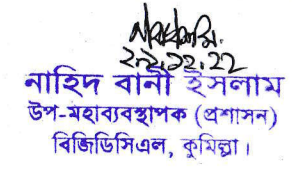 ২৯.১২.২২
নাহিদ বানী ইসলাম
উপ-মহাব্যবস্থাপক (প্রশাসন)
বিজিডিসিএল, কুমিল্লা।